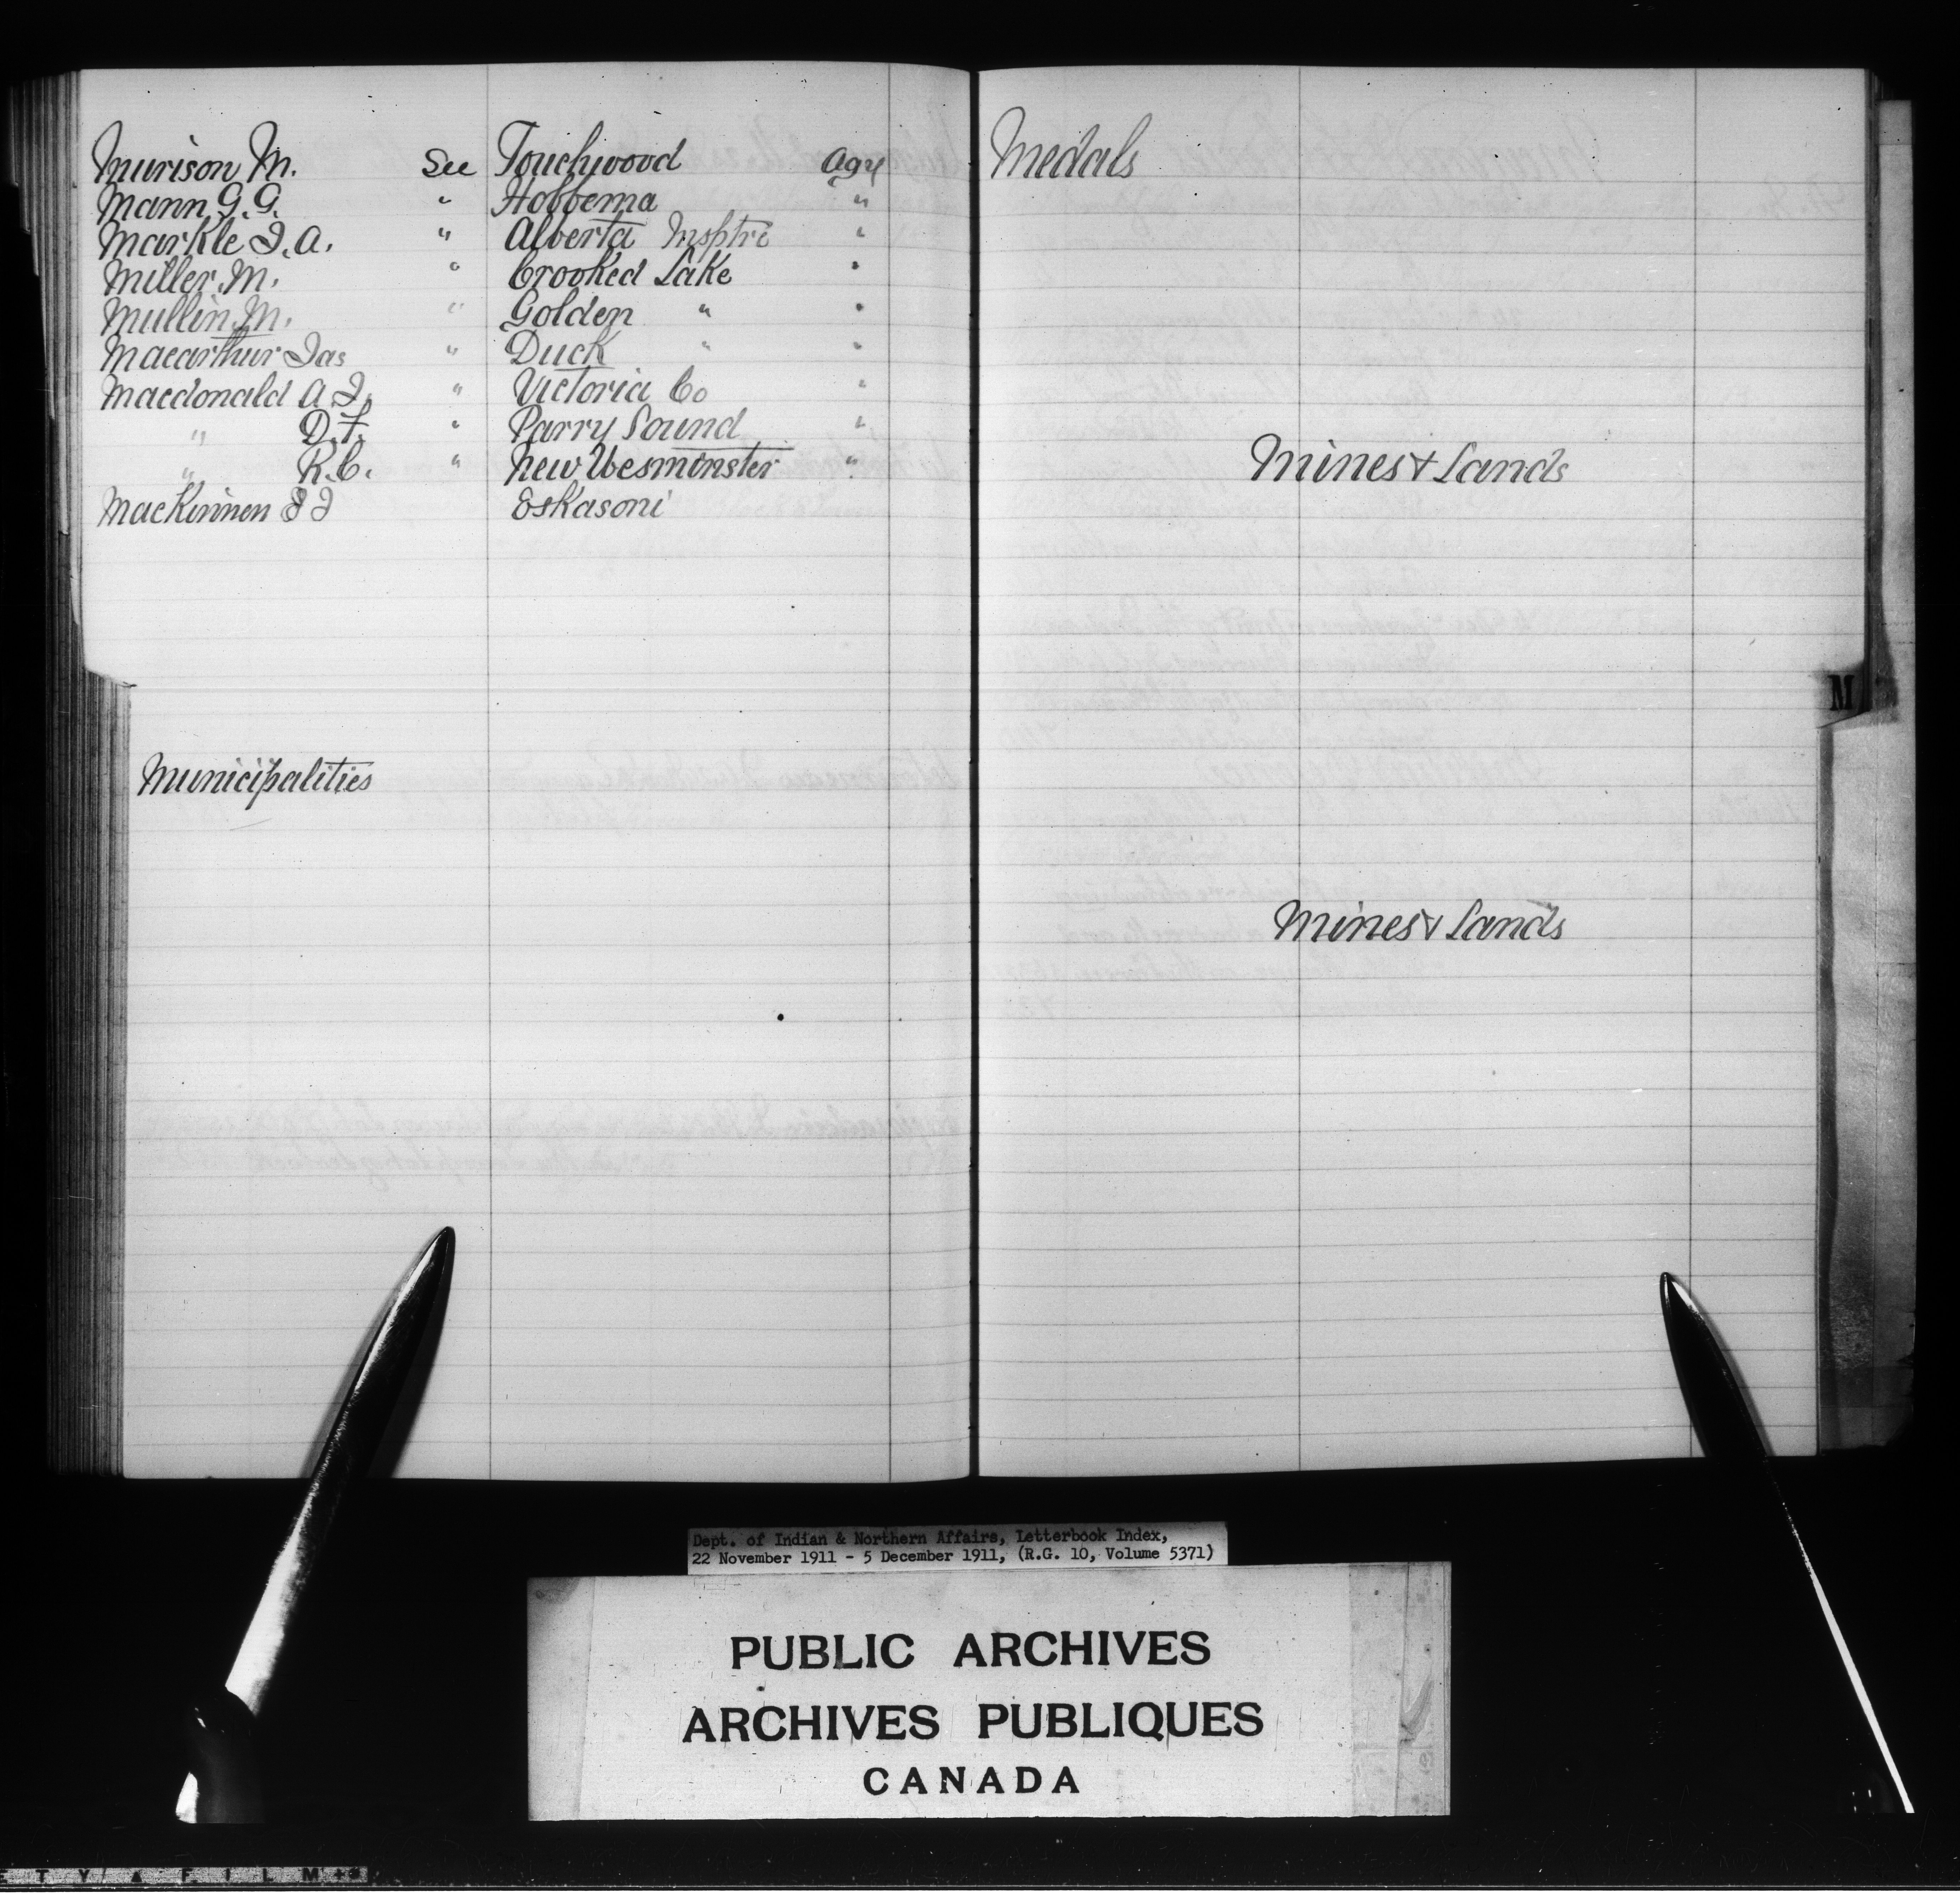 Murison, M. See Touchwood Agy
Mann, G.G. " Hobbema "
Markle J.A. " Alberta Insptre "
Miller, M. " Crooked Lake "
Mullin, M. " Golden " "
Macarthur Jas " Duck " "
Macdonald A.J. " Victoria Co "
" D.F. " Parry Sound "
" R.C. " New Wesminster "
MacKinnen J J Eskasoni
Municipalities
Medals
Mines & Lands
M
Mines & Lands
Dept. of Indian & Northern Affairs, Letterbook Index,
22 November 1911 - 5 December 1911, (R.G. 10, Volume 5371)
PUBLIC ARCHIVES
ARCHIVES PUBLIQUES
CANADA
E T Y F I L M